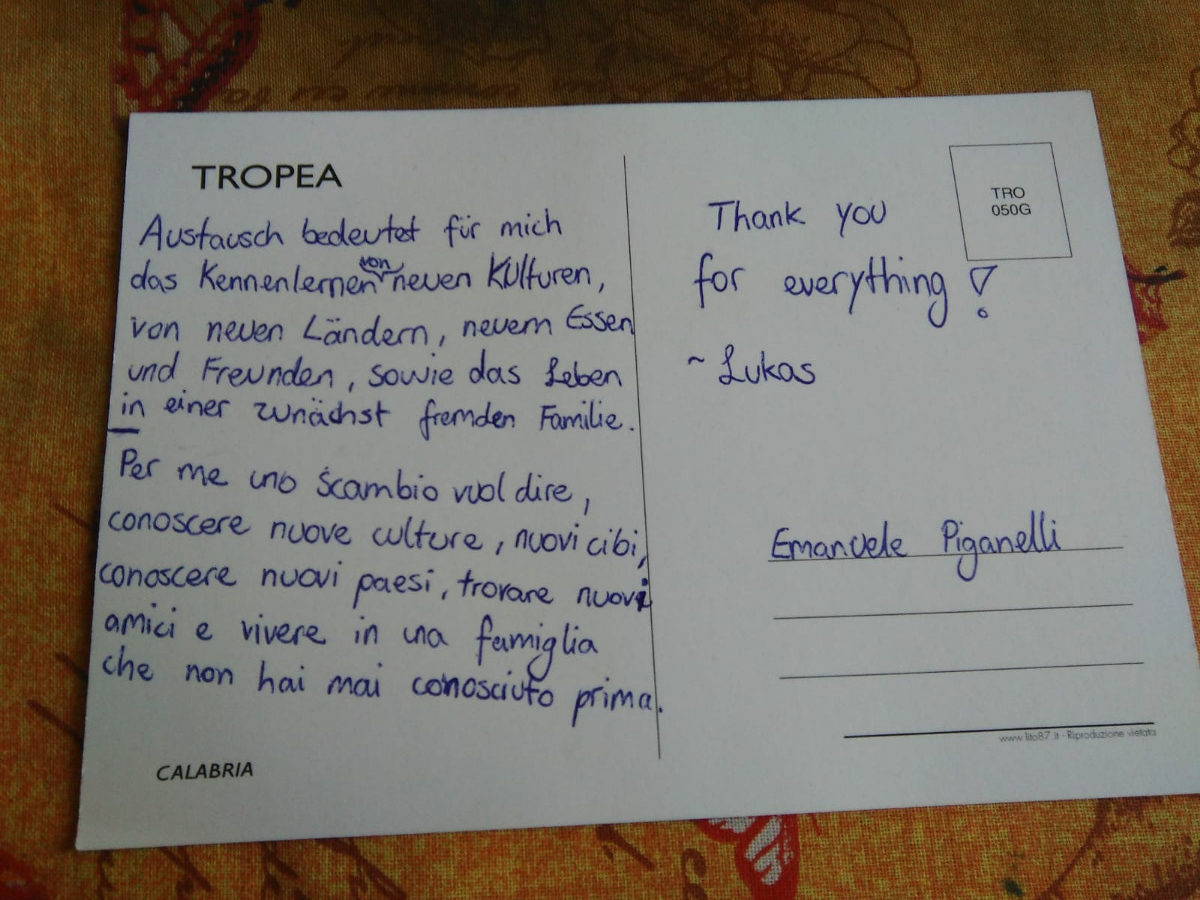 TROPEA
Austausch bedeutet für mich
das Kennenlernen von neuen Kulturen,
von neuen Ländern, neuem Essen
und Freunden, sowie das Leben
in einer zunächst fremden Familie.
Per me uno scambio vuol dire,
conoscere nuove culture, nuovi cibi,
conoscere nuovi paesi, trovare nuovi
amici e vivere in una famiglia
che non hai mai conosciuto prima.
CALABRIA
TRO
050G
Thank you
for everything!
~ Lukas
Emanuele Piganelli
www.lito87.it - Riproduzione vietata